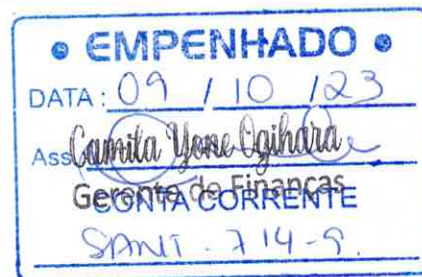 • EMPENHADO •
DATA: 09 / 10 / 23
Ass Camila Yone Ogihara
Gerente de Finanças
CONTA CORRENTE
SANT - 714-9.